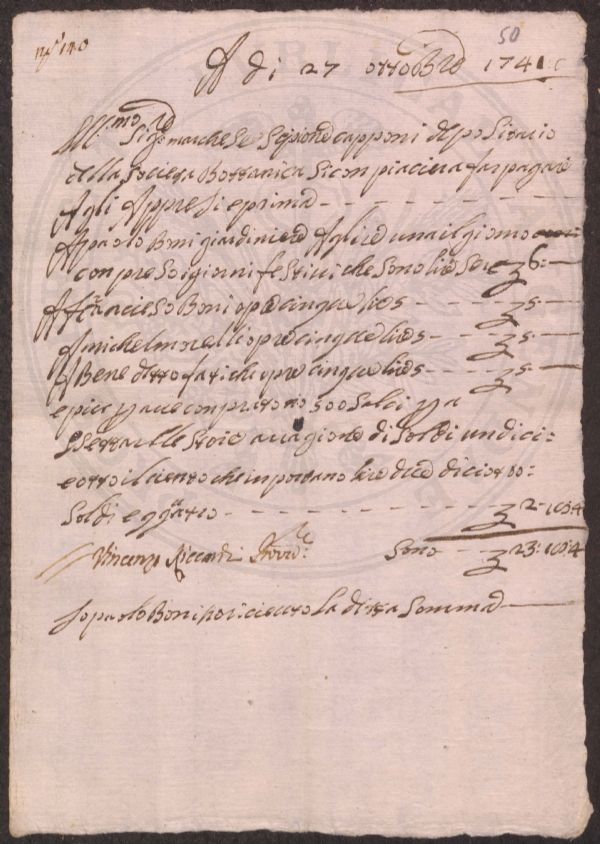 n.º 140
50
A di 27 ottobre 1741
Ill.mo Sig.re marchese Scipione capponi depositario
della Società Bottanica si conpiacera far pagare
Agli Appresi e prima
A paolo Boni giardiniere A lire una il giorno
conpreso i giorni festivi che sono lire sei 6:—
A Francieso Boni opre cinque lires 5:—
A michel morelli opre cinque lires 5:—
A Benedetto fatichi opre cinque lires 5:—
e piu conprato no 500 Salci
Stoie a ragione di Soldi undici
e otto il ciento che inportano lire due diciotto
Soldi e quatro 2-18:4
Vincenzo Ricardi Prov.re Sono 23:18:4
Io paolo Boni ho riceuto La detta Somma